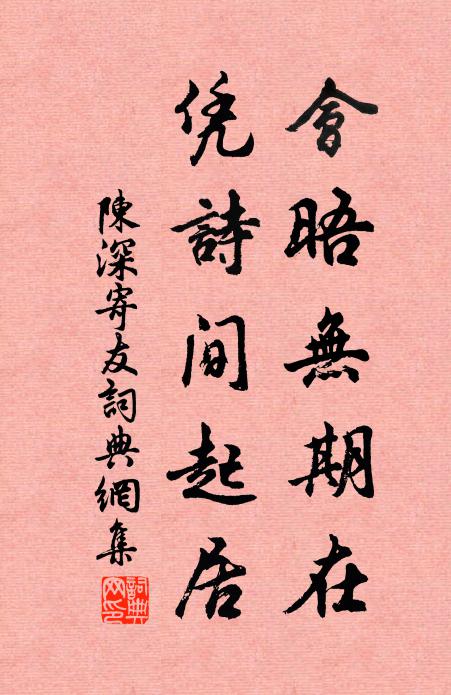 會晤無期在
凭詩间起居
陳深寄友詞典網集
詞典網印